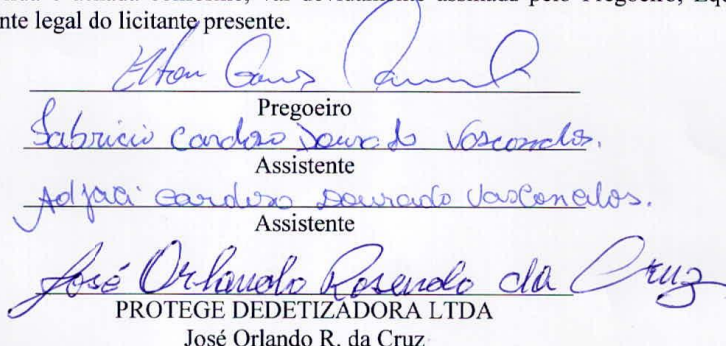 nte legal do licitante presente.
Elton
Pregoeiro
Fabricio Cardoso Dourado Vasconcelos.
Assistente
Adjaci Cardoso Dourado Vasconcelos.
Assistente
José Orlando Rosendo da Cruz
PROTEGE DEDETIZADORA LTDA
José Orlando R. da Cruz